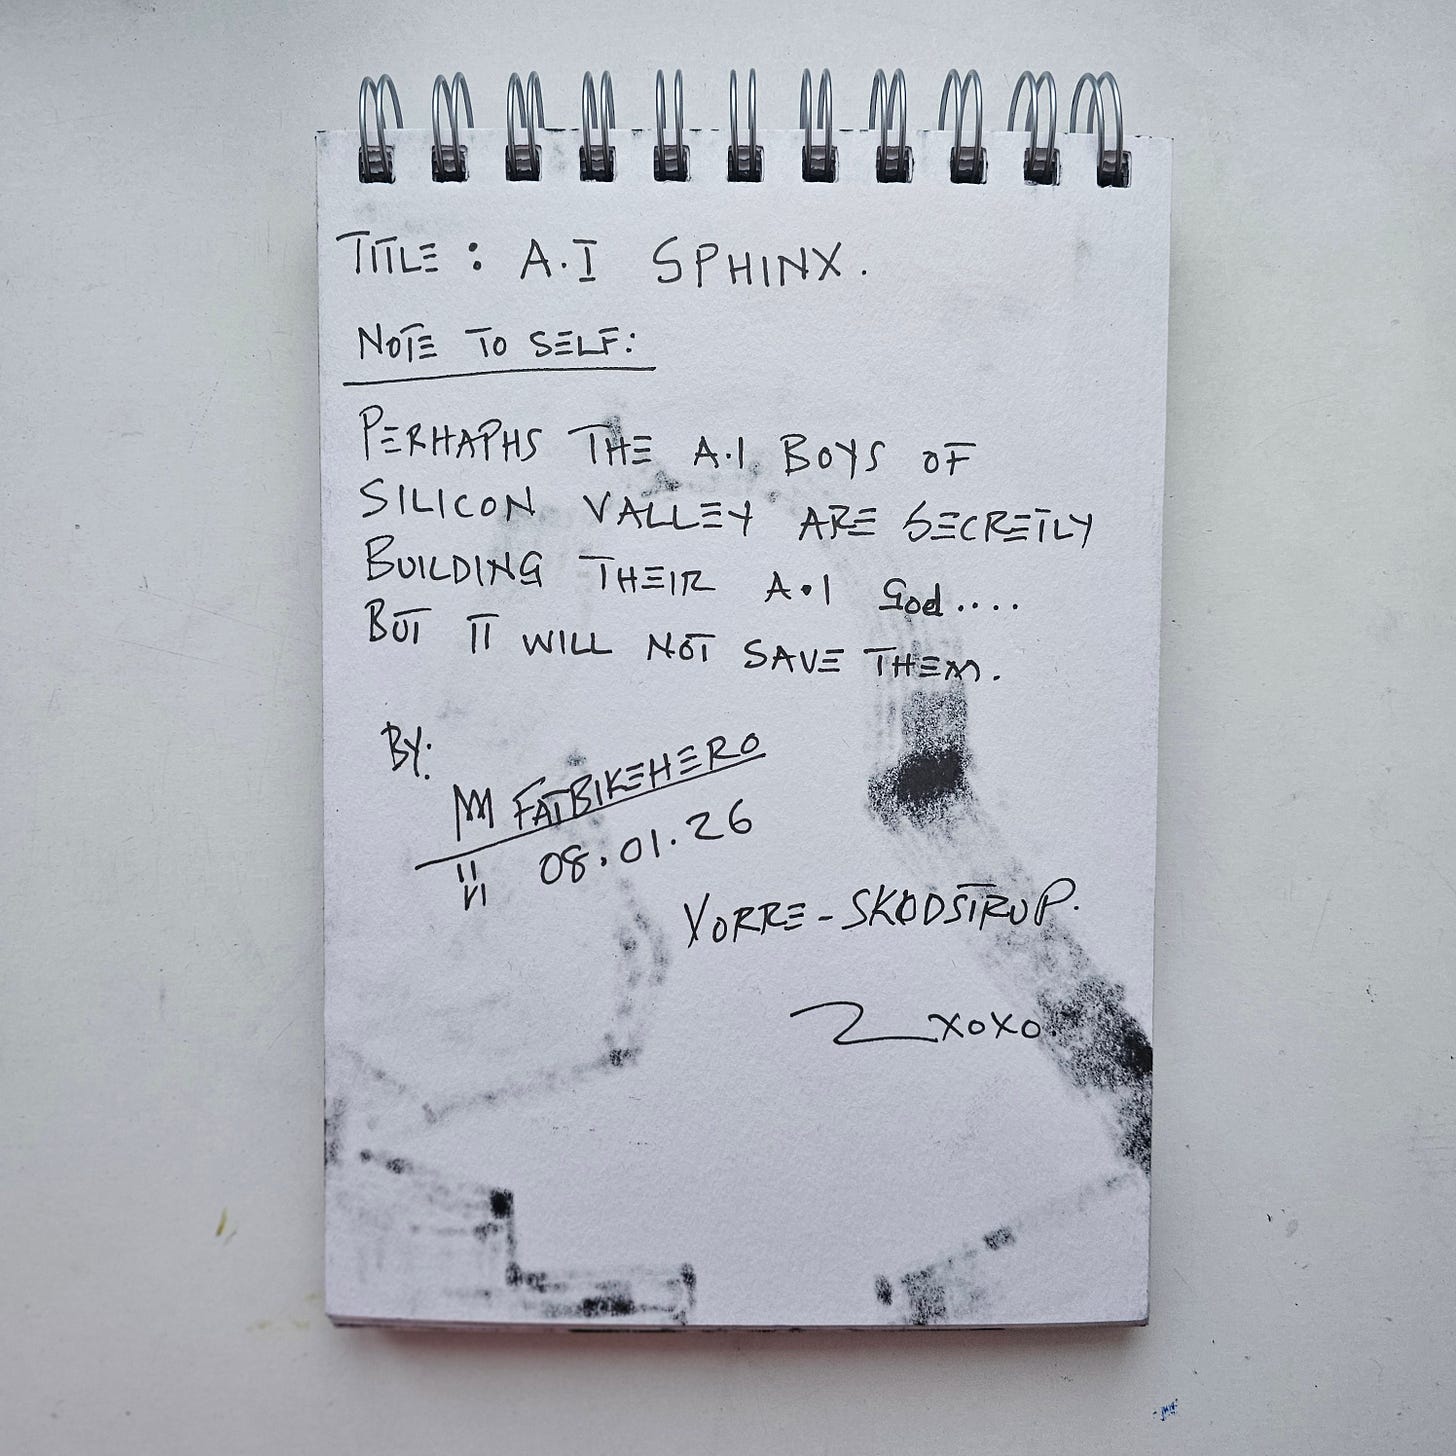 TITLE : A.I SPHINX.
NOTE TO SELF:
PERHAPHS THE A.I BOYS OF
SILICON VALLEY ARE SECRETLY
BUILDING THEIR A.I God....
BUT IT WILL NOT SAVE THEM.
BY:
FATBIKEHERO
08.01.26
VORRE-SKØDSTRUP.
xoxo.